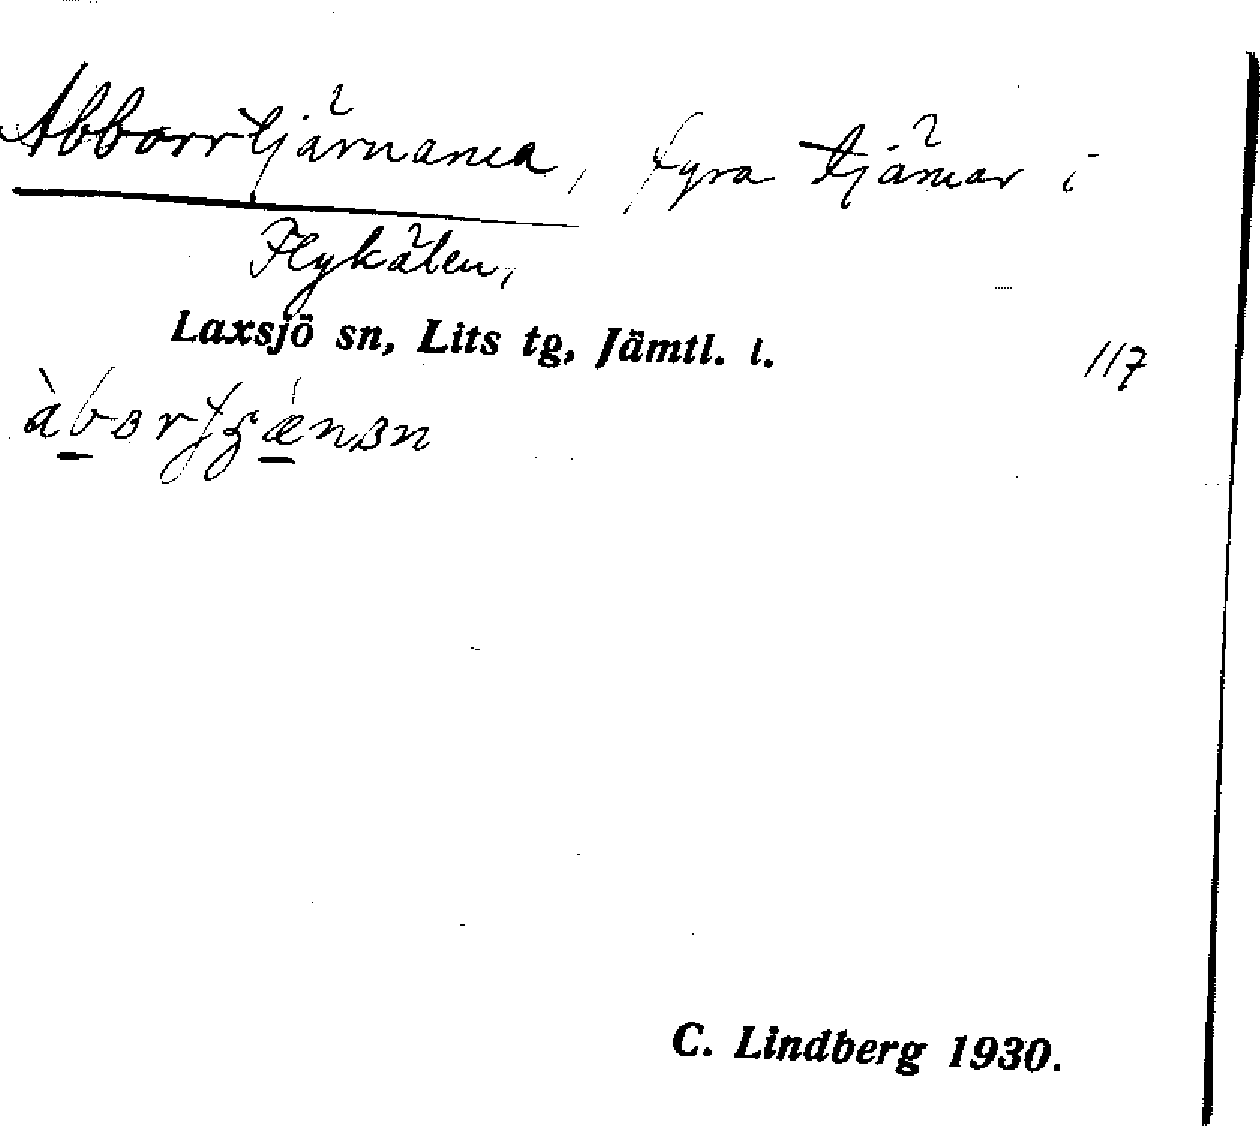 Abborrtjärnarna, fyra tjärnar i
Flykälen,
Laxsjö sn, Lits tg, Jämtl. l.
117
C. Lindberg 1930.